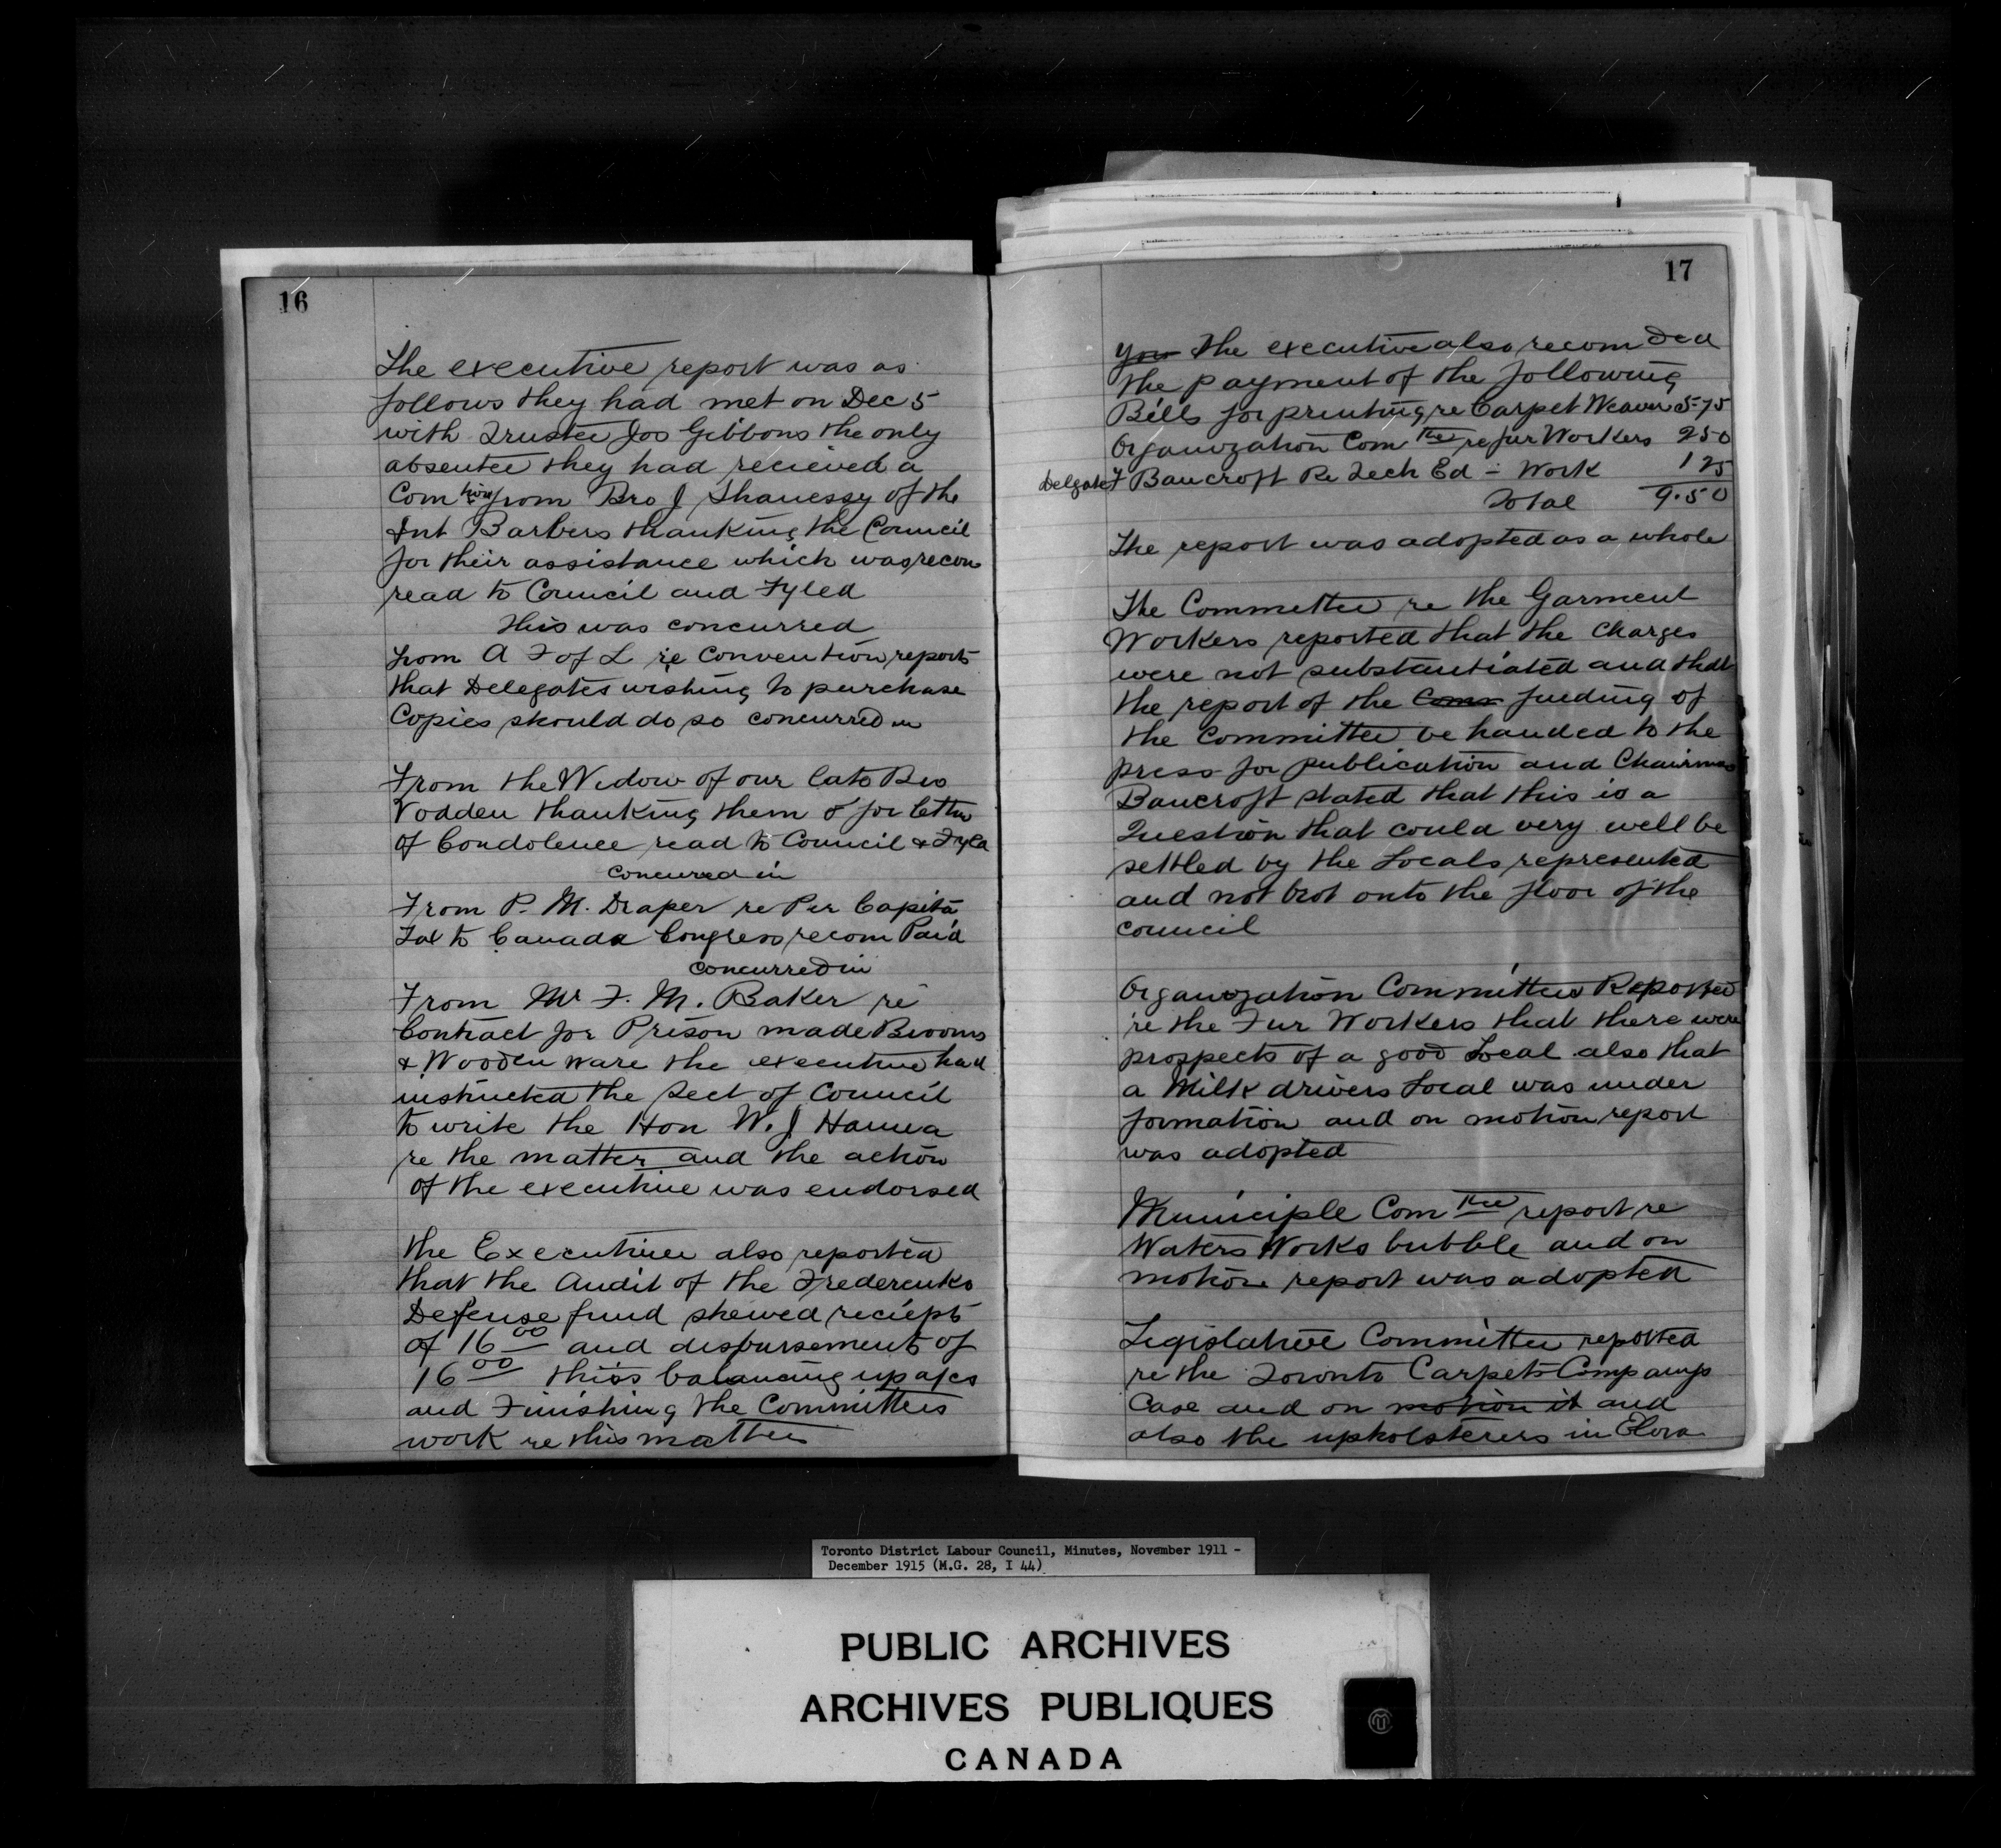 16
The executive report was as
follows they had met on Dec 5
with Trustee Jos Gibbons the only
absentee they had recieved a
Com tion from Bro J Shanessy of the
Int Barbers thanking the Council
for their assistance which was recom
read to Council and Fyled
This was concurred
from A F of L re Convention reports
that Delegates wishing to purchase
Copies should do so concurred in
From the Widow of our late Bro
Vodden thanking them for letter
of Condolence read to Council & Fyld
concurred in
From P. M. Draper re Per Capita
Tax to Canada Congress recom Paid
concurred in
From Mr F. M. Baker re
Contract for Prison made Brooms
& Wooden ware the executive had
instructed the Sect of Council
to write the Hon W. J Hanna
re the matter and the action
of the executive was endorsed
the Executive also reported
that the Audit of the Federenko
Defense fund shewed reciepts
of 16 00 and disbursements of
16 00 this balancing up
and Finishing the Committees
work re this matter
17
you The executive also recomded
the payment of the following
Bills for printing re Carpet Weavers 5.75
Organization Com tee re fur Workers 2 50
Delegate F Bancroft Re Tech Ed - Work 1 25
Total 9.50
The report was adopted as a whole
The Committee re the Garment
Workers reported that the Charges
were not substantiated and that
the report of the Com finding of
the committee be handed to the
press for publication and Chairman
Bancroft stated that this is a
Question that could very well be
settled by the Locals represented
and not brot onto the floor of the
council
Organization Committee Reported
re the Fur Workers that there were
prospects of a good Local also that
a Milk drivers Local was under
formation and on motion report
was adopted
Municiple Com tee report re
Waters Works bubble and on
motion report was adopted
Legislative Committee reported
re the Toronto Carpet Companys
Case and on motion it and
also the upholsterers in Elora
Toronto District Labour Council, Minutes, November 1911 -
December 1915 (M.G. 28, I 44)
PUBLIC ARCHIVES
ARCHIVES PUBLIQUES
CANADA